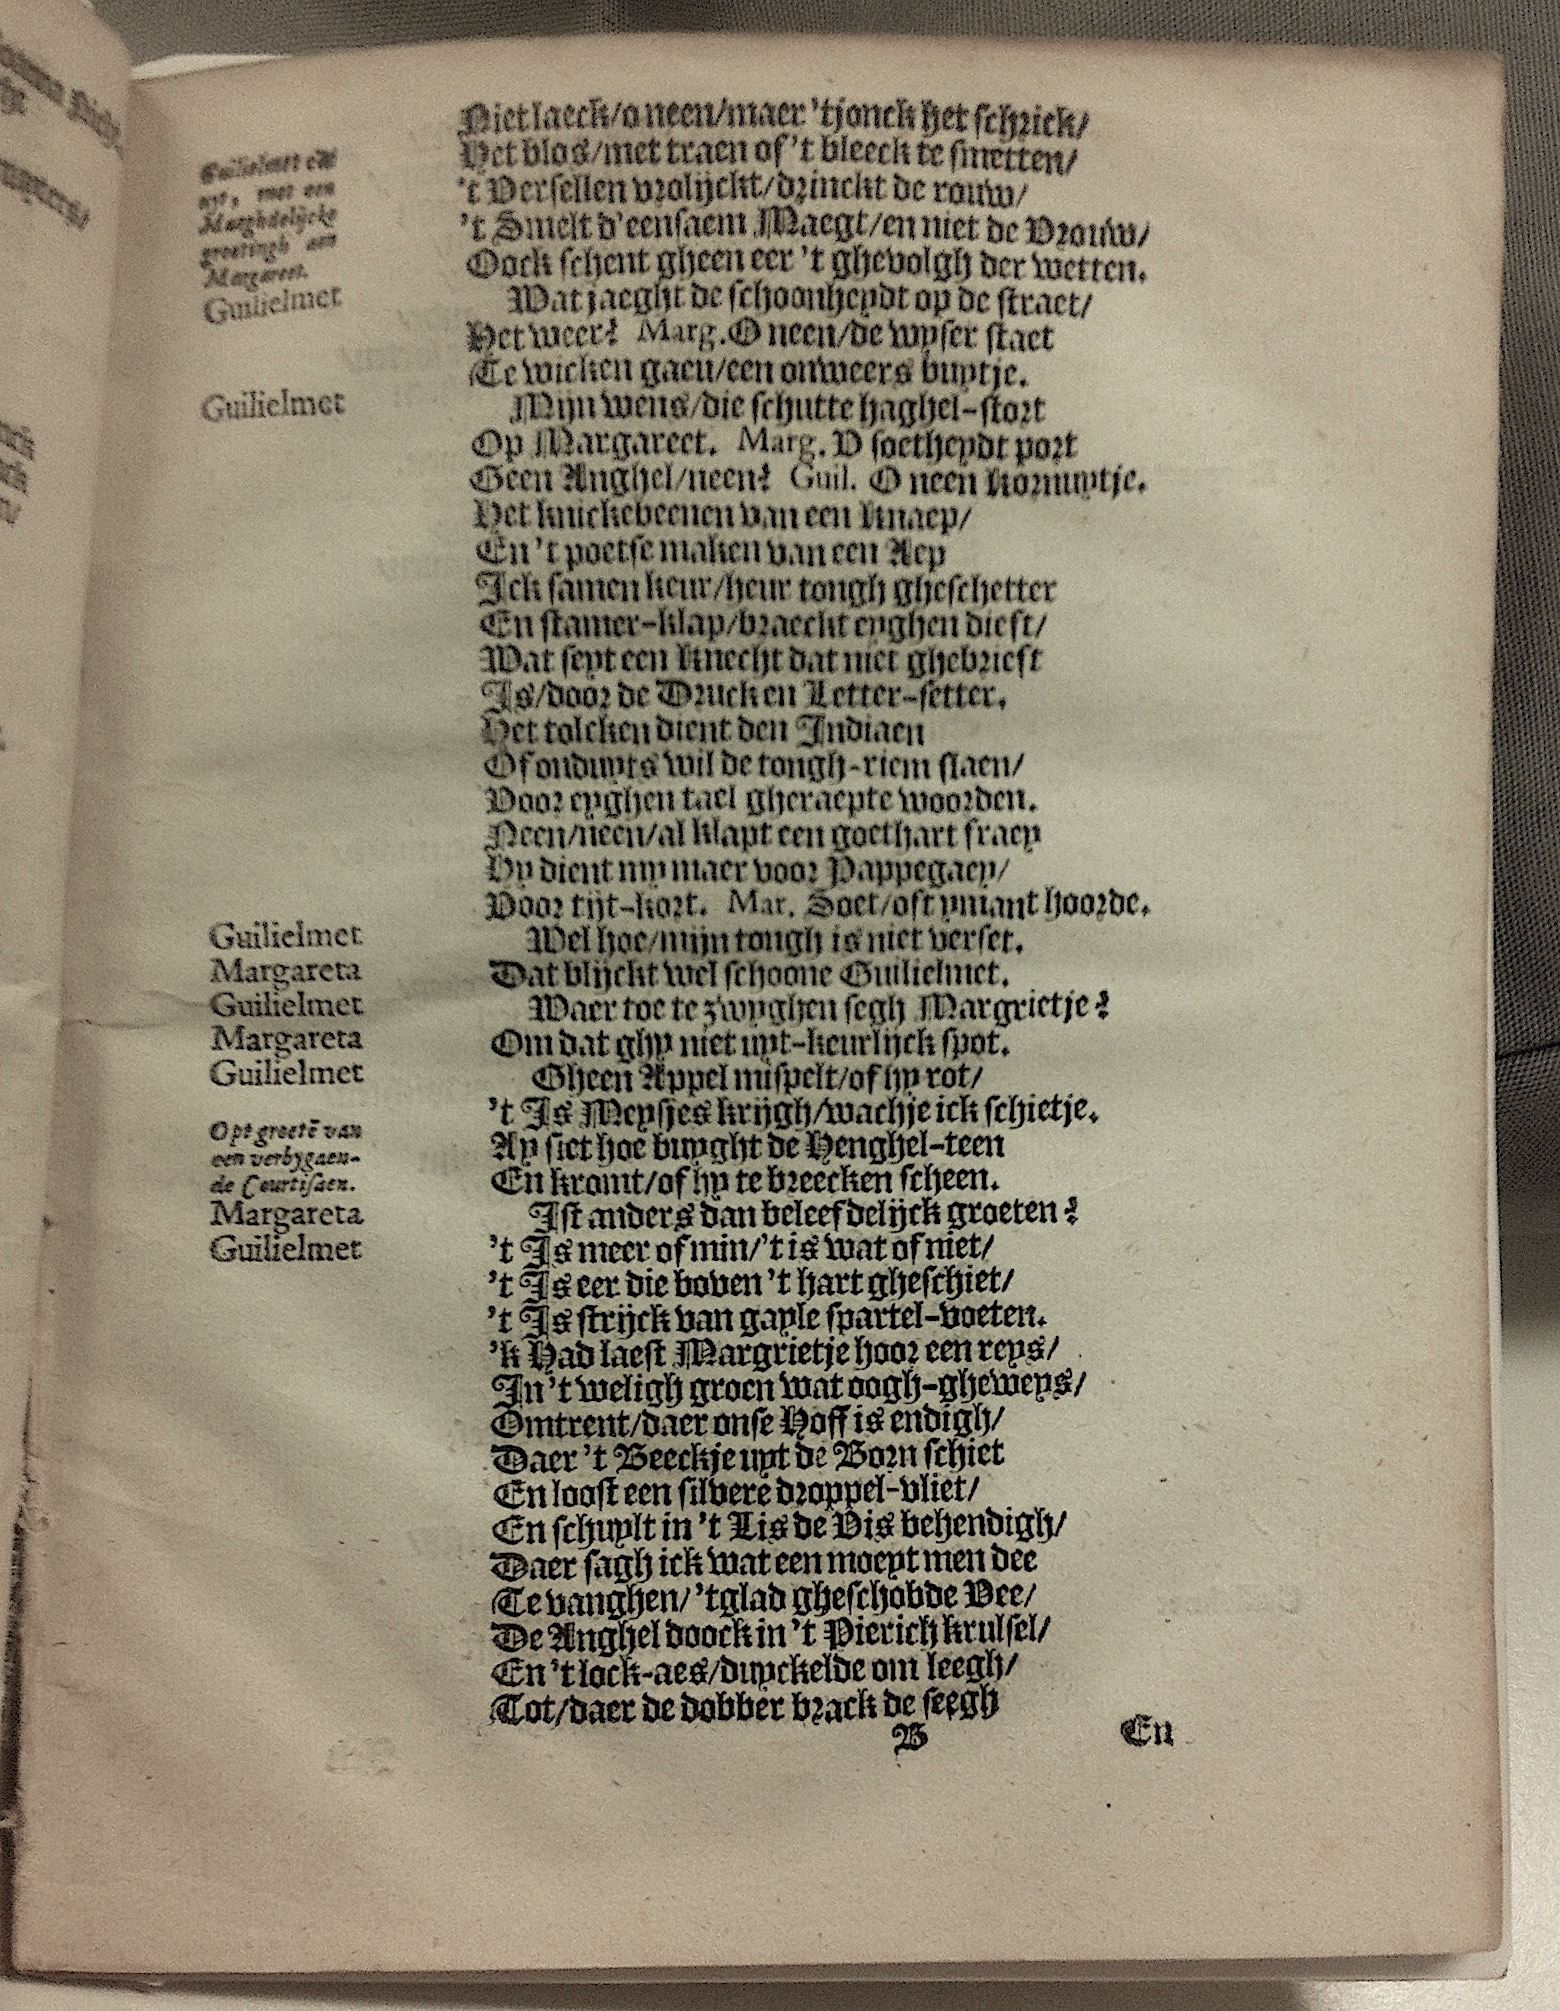 Niet laeck/o neen/maer 'tjonck het schrick/
Het blos/met traen of 't bleeck te smetten/
't Versellen vrolijckt/drinckt de rouw/
't Smelt d'eensaem Maegt/en niet de Vrouw/
Oock schent gheen eer 't ghevolgh der wetten.
Guilielmet
uyt, met een
Maeghdelijcke
groetingh aen
Margareet.
Guilielmet Wat jaeght de schoonheydt op de straet/
Het weer? Marg. O neen/de wyser staet
Te wicken gaeu/een onweers buytje.
Guilielmet Mijn wens/die schutte haghel-stort
Op Margareet. Marg. V soetheydt port
Geen Anghel/neen? Guil. O neen kornuytje.
Het knickebeenen van een knaep/
En 't poetse maken van een Aep
Ick samen keur/heur tongh gheschetter
En stamer-klap/braeckt eyghen diest/
Wat seyt een knecht dat niet ghebriest
Is/door de Druck en Letter-setter.
Het tolcken dient den Indiaen
Of onduyts wil de tongh-riem slaen/
Voor eyghen tael gheraepte woorden.
Neen/neen/al klapt een goet hart fraey
Hy dient my maer voor Pappegaey/
Voor tijt-kort. Mar. Soet/oft ymant hoorde.
Guilielmet Wel hoe/mijn tongh is niet verset.
Margareta Dat blijckt wel schoone Guilielmet.
Guilielmet Waer toe te zwyghen segh Margrietje?
Margareta Om dat ghy niet uyt-keurlijck spot.
Guilielmet Gheen Appel mispelt/of hy rot/
't Is Meysjes krijgh/wachje ick schietje.
Opt groetē van
een verbygaen-
de Courtisaen.
Ay siet hoe buyght de Henghel-teen
En kromt/of hy te breecken scheen.
Margareta Ist anders dan beleefdelijck groeten?
Guilielmet 't Is meer of min/'t is wat of niet/
't Is eer die boven 't hart gheschiet/
't Is strijck van gayle spartel-voeten.
'k Had laest Margrietje hoor een reys/
In 't weligh groen wat oogh-gheweys/
Omtrent/daer onse Hoff is endigh/
Daer 't Beeckje uyt de Born schiet
En loost een silvere droppel-vliet/
En schuylt in 't Lis de Vis behendigh/
Daer sagh ick wat een moeyt men dee
Te vanghen/'tglad gheschobde Vee/
De Anghel doock in 't Pierich krulsel/
En 't lock-aes/duyckelde om leegh/
Tot/daer de dobber brack de seegh
B En